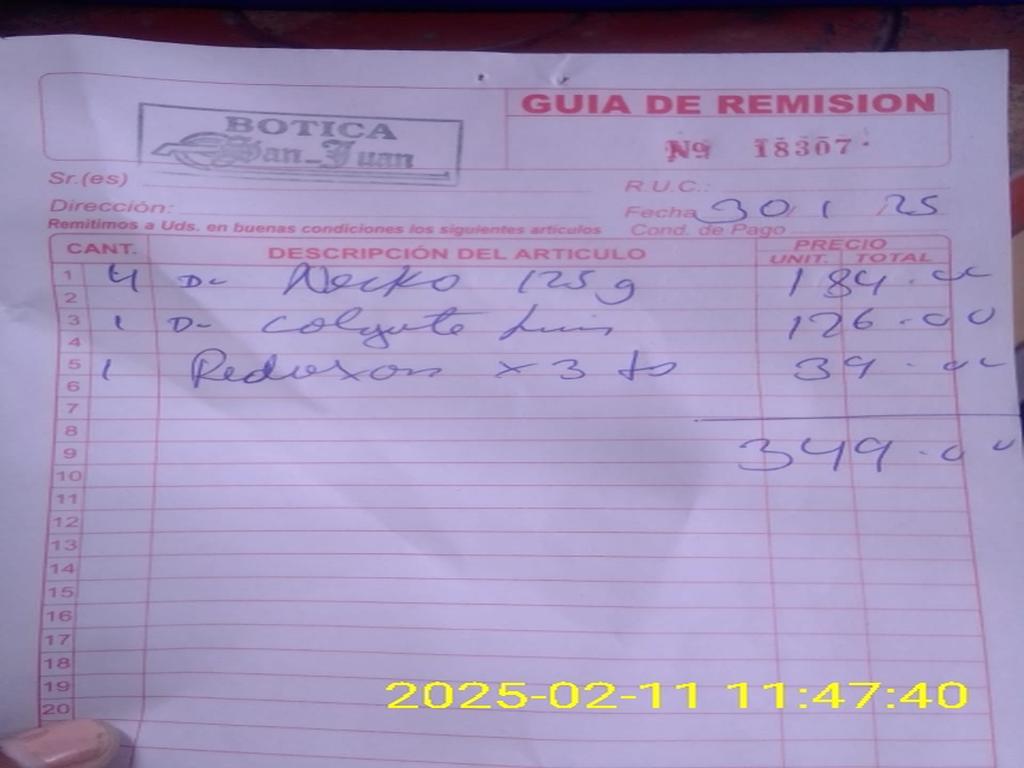 BOTICA
San-Juan
GUIA DE REMISION
Nº 18307
Sr.(es)
R.U.C.:
Dirección:
Fecha 30 1 25
Remitimos a Uds. en buenas condiciones los siguientes artículos
Cond. de Pago
CANT. DESCRIPCIÓN DEL ARTICULO PRECIO
UNIT. TOTAL
1 4 D- Necko 125g 184.00
2
3 1 D- Colgate 126.00
4
5 1 Redoxon x 3 39.00
6
7
8
9 349.00
10
11
12
13
14
15
16
17
18
19
20
2025-02-11 11:47:40